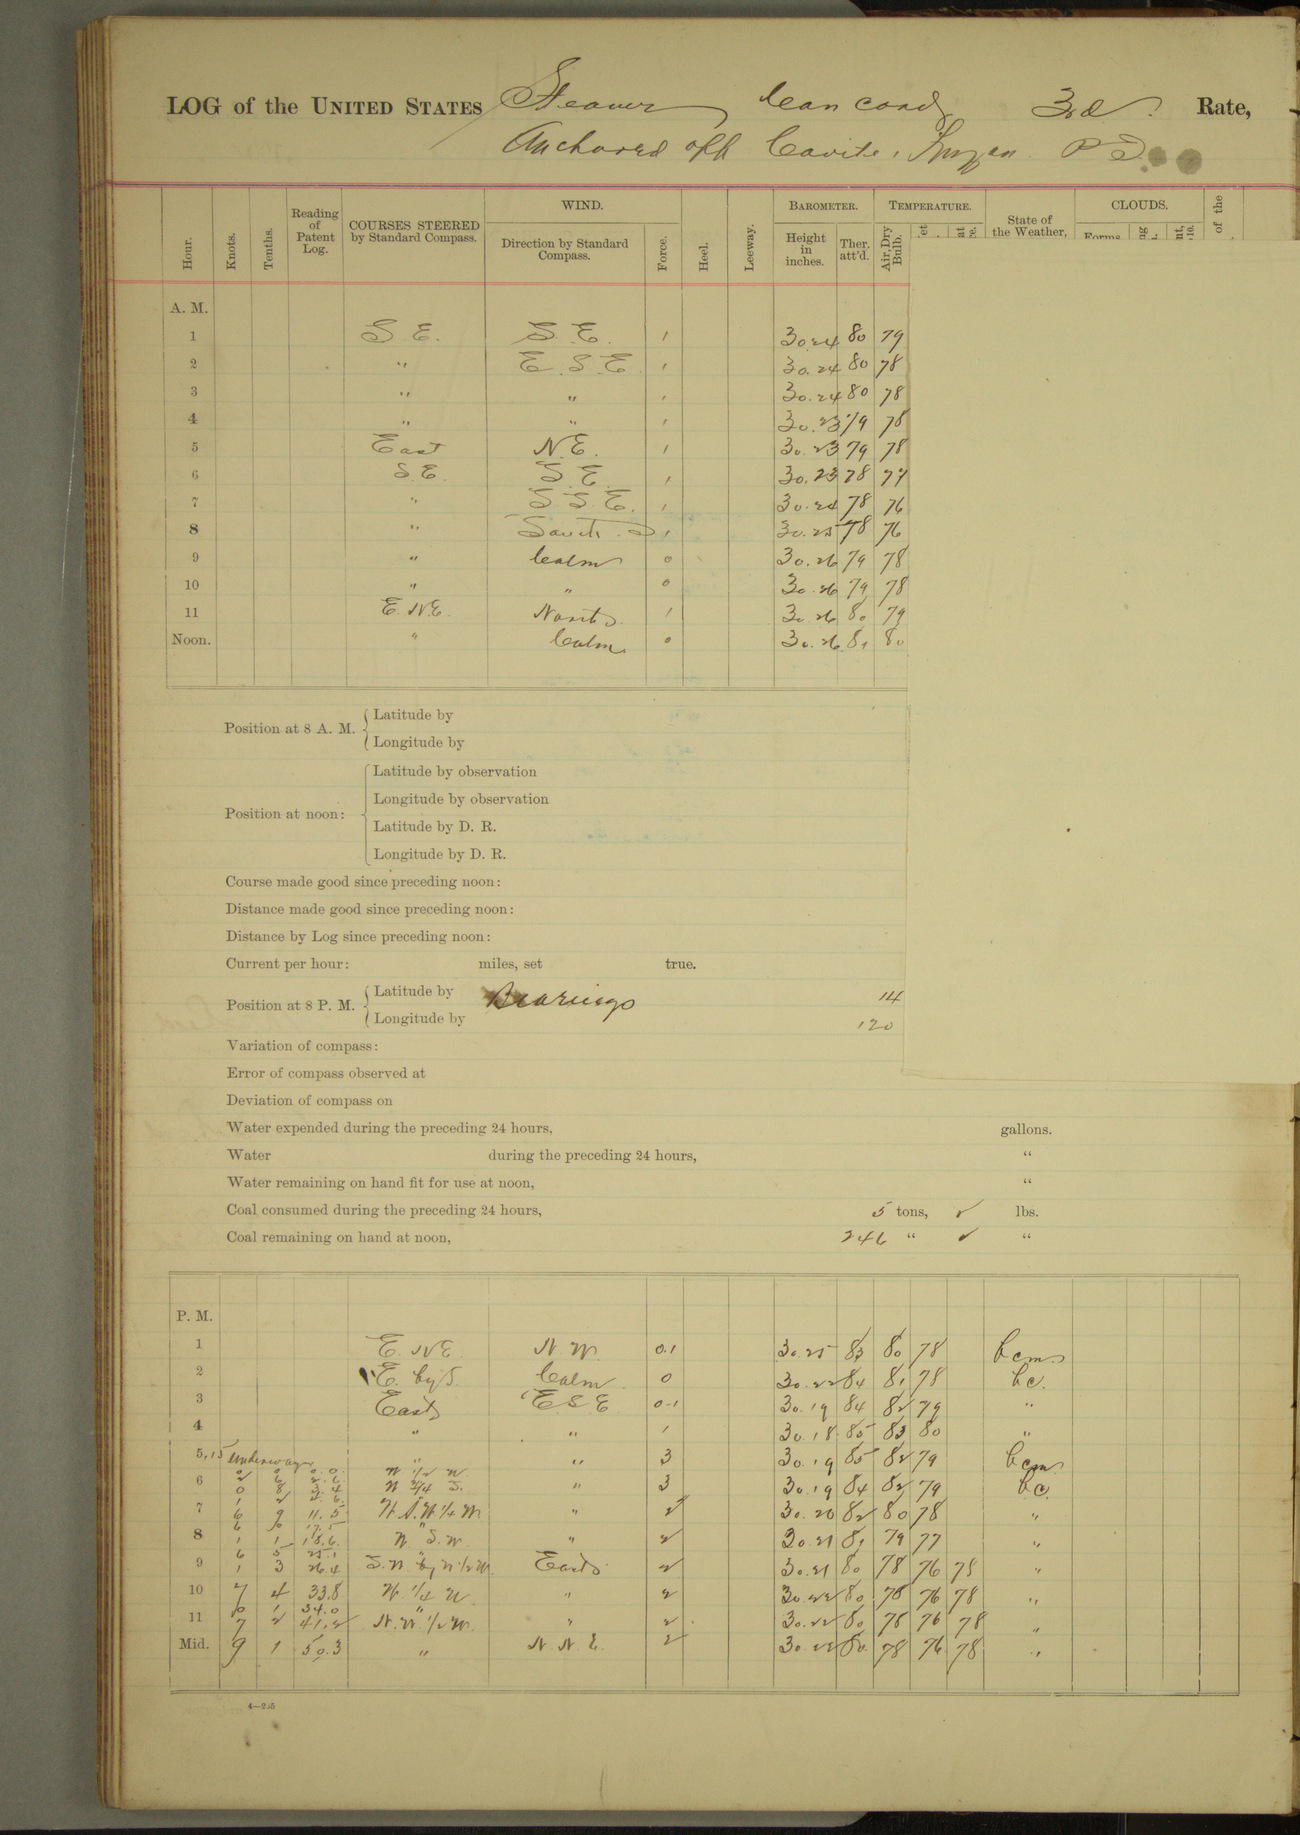 LOG of the UNITED STATES Steamer Concord, 3rd Rate,
Anchored off Cavite, Luzon P I
Hour. Knots. Tenths. Reading of Patent Log. COURSES STEERED by Standard Compass. WIND. Direction by Standard Compass. Force. Heel. Leeway. BAROMETER. Height in inches. Ther. att'd. TEMPERATURE. Air, Dry Bulb. State of the Weather, CLOUDS. Forms of the
A. M.
1 S E. S. E. 1 30.24 80 79
2 " E. S. E 1 30.24 80 78
3 " " 1 30.24 80 78
4 " " 1 30.23 79 78
5 East N.E. 1 30.23 79 78
6 S.E. S.E. 1 30.23 78 77
7 " S S E. 1 30.24 78 76
8 " South 1 30.25 78 76
9 " Calm 0 30.26 79 78
10 " " 0 30.26 79 78
11 E. N.E. North 1 30.26 80 79
Noon. " Calm 0 30.26 81 80
Position at 8 A. M. Latitude by
Longitude by
Position at noon: Latitude by observation
Longitude by observation
Latitude by D. R.
Longitude by D. R.
Course made good since preceding noon:
Distance made good since preceding noon:
Distance by Log since preceding noon:
Current per hour: miles, set true.
Position at 8 P. M. Latitude by Bearings 14
Longitude by 120
Variation of compass:
Error of compass observed at
Deviation of compass on
Water expended during the preceding 24 hours, gallons.
Water during the preceding 24 hours, "
Water remaining on hand fit for use at noon, "
Coal consumed during the preceding 24 hours, 5 tons, ✓ lbs.
Coal remaining on hand at noon, 246 " ✓ "
P. M.
1 E. NE. N. W. 0.1 30.25 83 80 78 bcm
2 E. by S. Calm 0 30.22 84 81 78 bc.
3 East E S E 0.1 30.19 84 82 79 "
4 " " 1 30.18 85 83 80 "
5,15 underway " " 3 30.19 85 82 79 bcm
0 0 0.0
2 6 2.6 W 1/2 N.
6 0 8 3.4 W 3/4 S. " 3 30.19 84 82 79 bc.
1 2 4.6
7 6 9 11.5 W.S.W 1/4 W. " 2 30.20 82 80 78 "
8 1 1 18.6 W. S.W. " 2 30.21 81 79 77 "
6 5 25.1
9 1 3 26.4 S.W. by W 1/2 W. East 2 30.21 80 78 76 78 "
10 7 4 33.8 W. 1/4 N. " 2 30.22 80 78 76 78 "
34.0
11 7 2 41.2 N.W. 1/2 W. " 2 30.22 80 78 76 78 "
Mid. 9 1 50.3 " N. N. E. 2 30.22 80 78 76 78 "
4—255